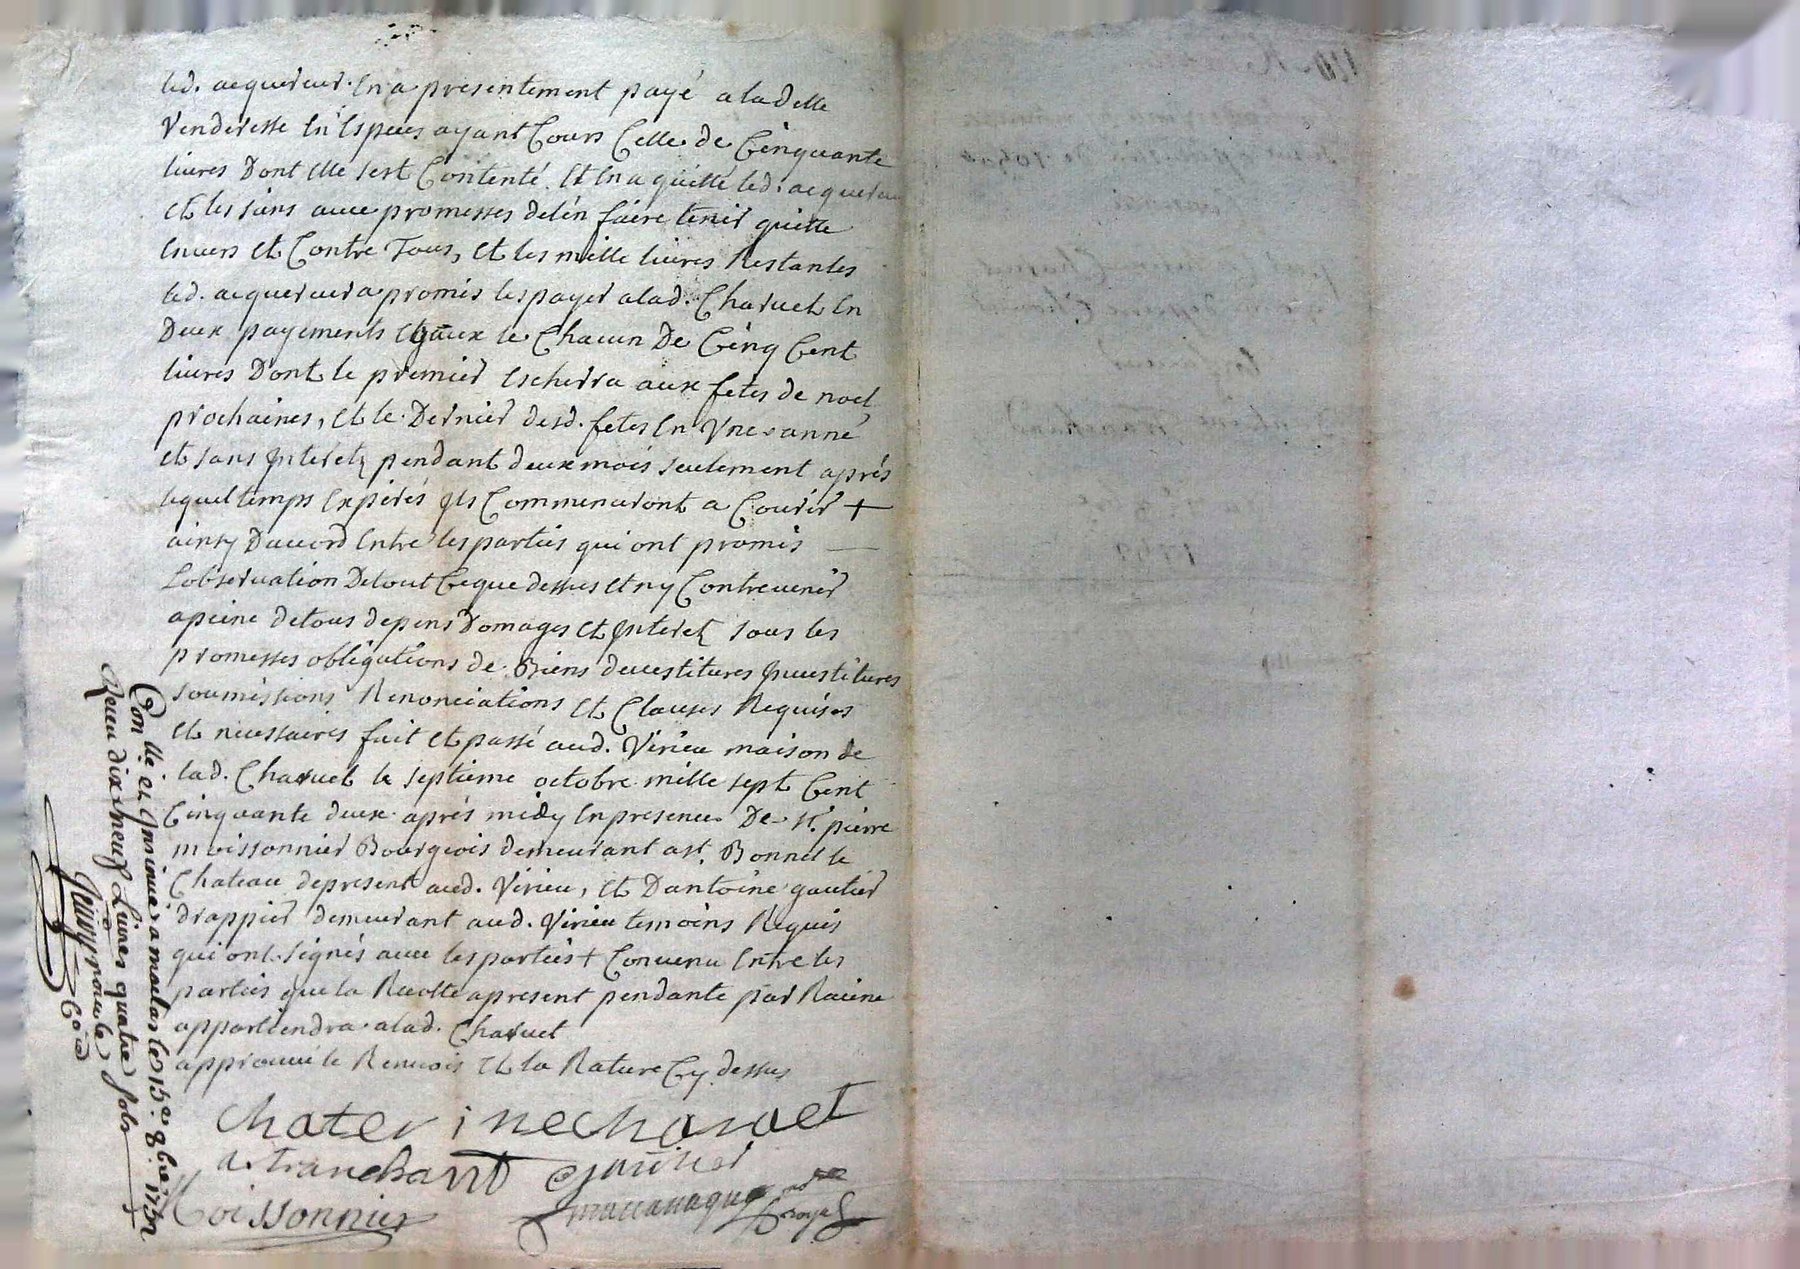 led. acquereur en a presentement payé a lad elle
Venderesse En Especes ayant Cours Celle de Cinquante
livres Dont elle s'est Contenté. Et En a quitté led. acquereur
et les siens avec promesses de l'en faire tenir quitte
Envers et Contre Tous, et les mille livres Restantes
led. acquereur a promis les payer a lad. Charvet En
Deux payements Egaux le Chacun De Cinq Cent
livres Dont le premier Escherra aux fetes de noel
prochaines, et le Dernier desd. fetes En Une année
et sans Interetz pendant deux mois seulement après
lequel temps Expirés Ils Commenceront a Courir +
ainsy D'accord Entre les parties qui ont promis
L'observation De tout Ce que dessus et n'y Contrevenir
a peine de tous depens Domages et Interetz sous les
promesses obligations de Biens devestitures Investitures
soumissions Renonciations et Clauses Requises
et necessaires fait et passé aud. Virieu maison de
lad. Charvet le septieme octobre mille sept Cent
Cinquante deux après midy En presence De sr. pierre
moissonnier Bourgeois demeurant a st. Bonnet le
Chateau de present aud. Virieu, et D'antoine gautier
drappier demeurant aud. Virieu temoins Requis
qui ont signés avec les parties + Convenu Entre les
parties que la Recolte apresent pendante par Racine
appartiendra a lad. Charvet
approuvé le Renvois et la Rature Cy dessus
chaterine charvet
a. tranchant gautier
Moissonnier
royal
Con.lle et Insinué a malas le 15e. 8bre. 1752
Receu dix neuf Livres quatre sols